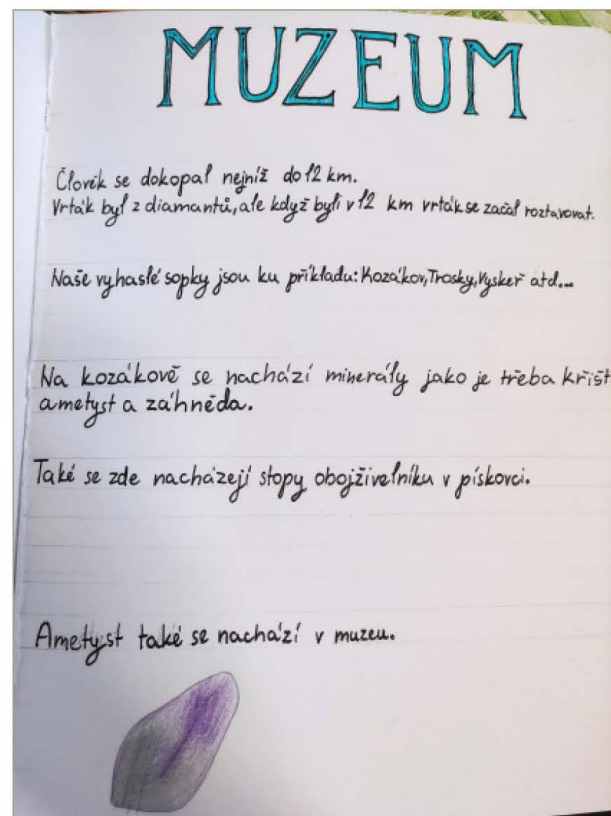 MUZEUM
Člověk se dokopal nejníž do 12 km.
Vrták byl z diamantů, ale když byli v 12 km vrták se začal roztavovat.
Naše vyhaslé sopky jsou ku příkladu: Kozákov, Trosky, Vyskeř atd...
Na kozákově se nachází minerály jako je třeba křišť
ametyst a záhněda.
Také se zde nacházejí stopy obojživelníku v pískovci.
Ametyst také se nachází v muzeu.